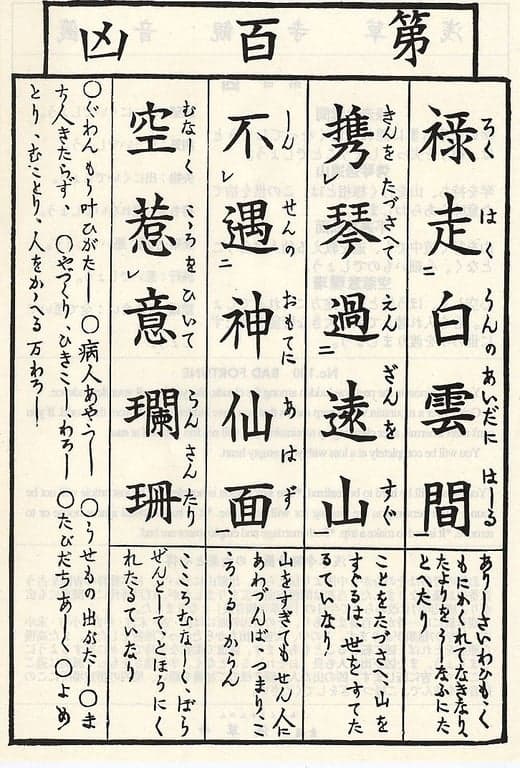 第百凶
ろく はくうんのあいだに はる
禄走二白雲間
きんをたづさへて えんざんを すぐ
携レ琴過二遠山
しん せんの おもてに あはず
不レ遇二神仙面
むなしく こゝろをひいて らんさんたり
空惹レ意瓓珊
ありしさいわひも、く
もにかくれてなきなり、
たよりをうしなふにた
とへたり
ことをたづさへ、山を
すぐるは、世をすてた
るていなり
山をすぎても せん人に
あわづんば、つまり、こ
ころ
こころむなし
ぜんとして、とほうにく
れたるていなり
〇ぐわんもう叶ひがたし〇病人あやうし 〇うせもの出がたし〇ま
ち人きたらず、〇やづくり、ひきこしわろし 〇たびだちあしく〇よめ
とり、むことり、人をかゝへる万わろし